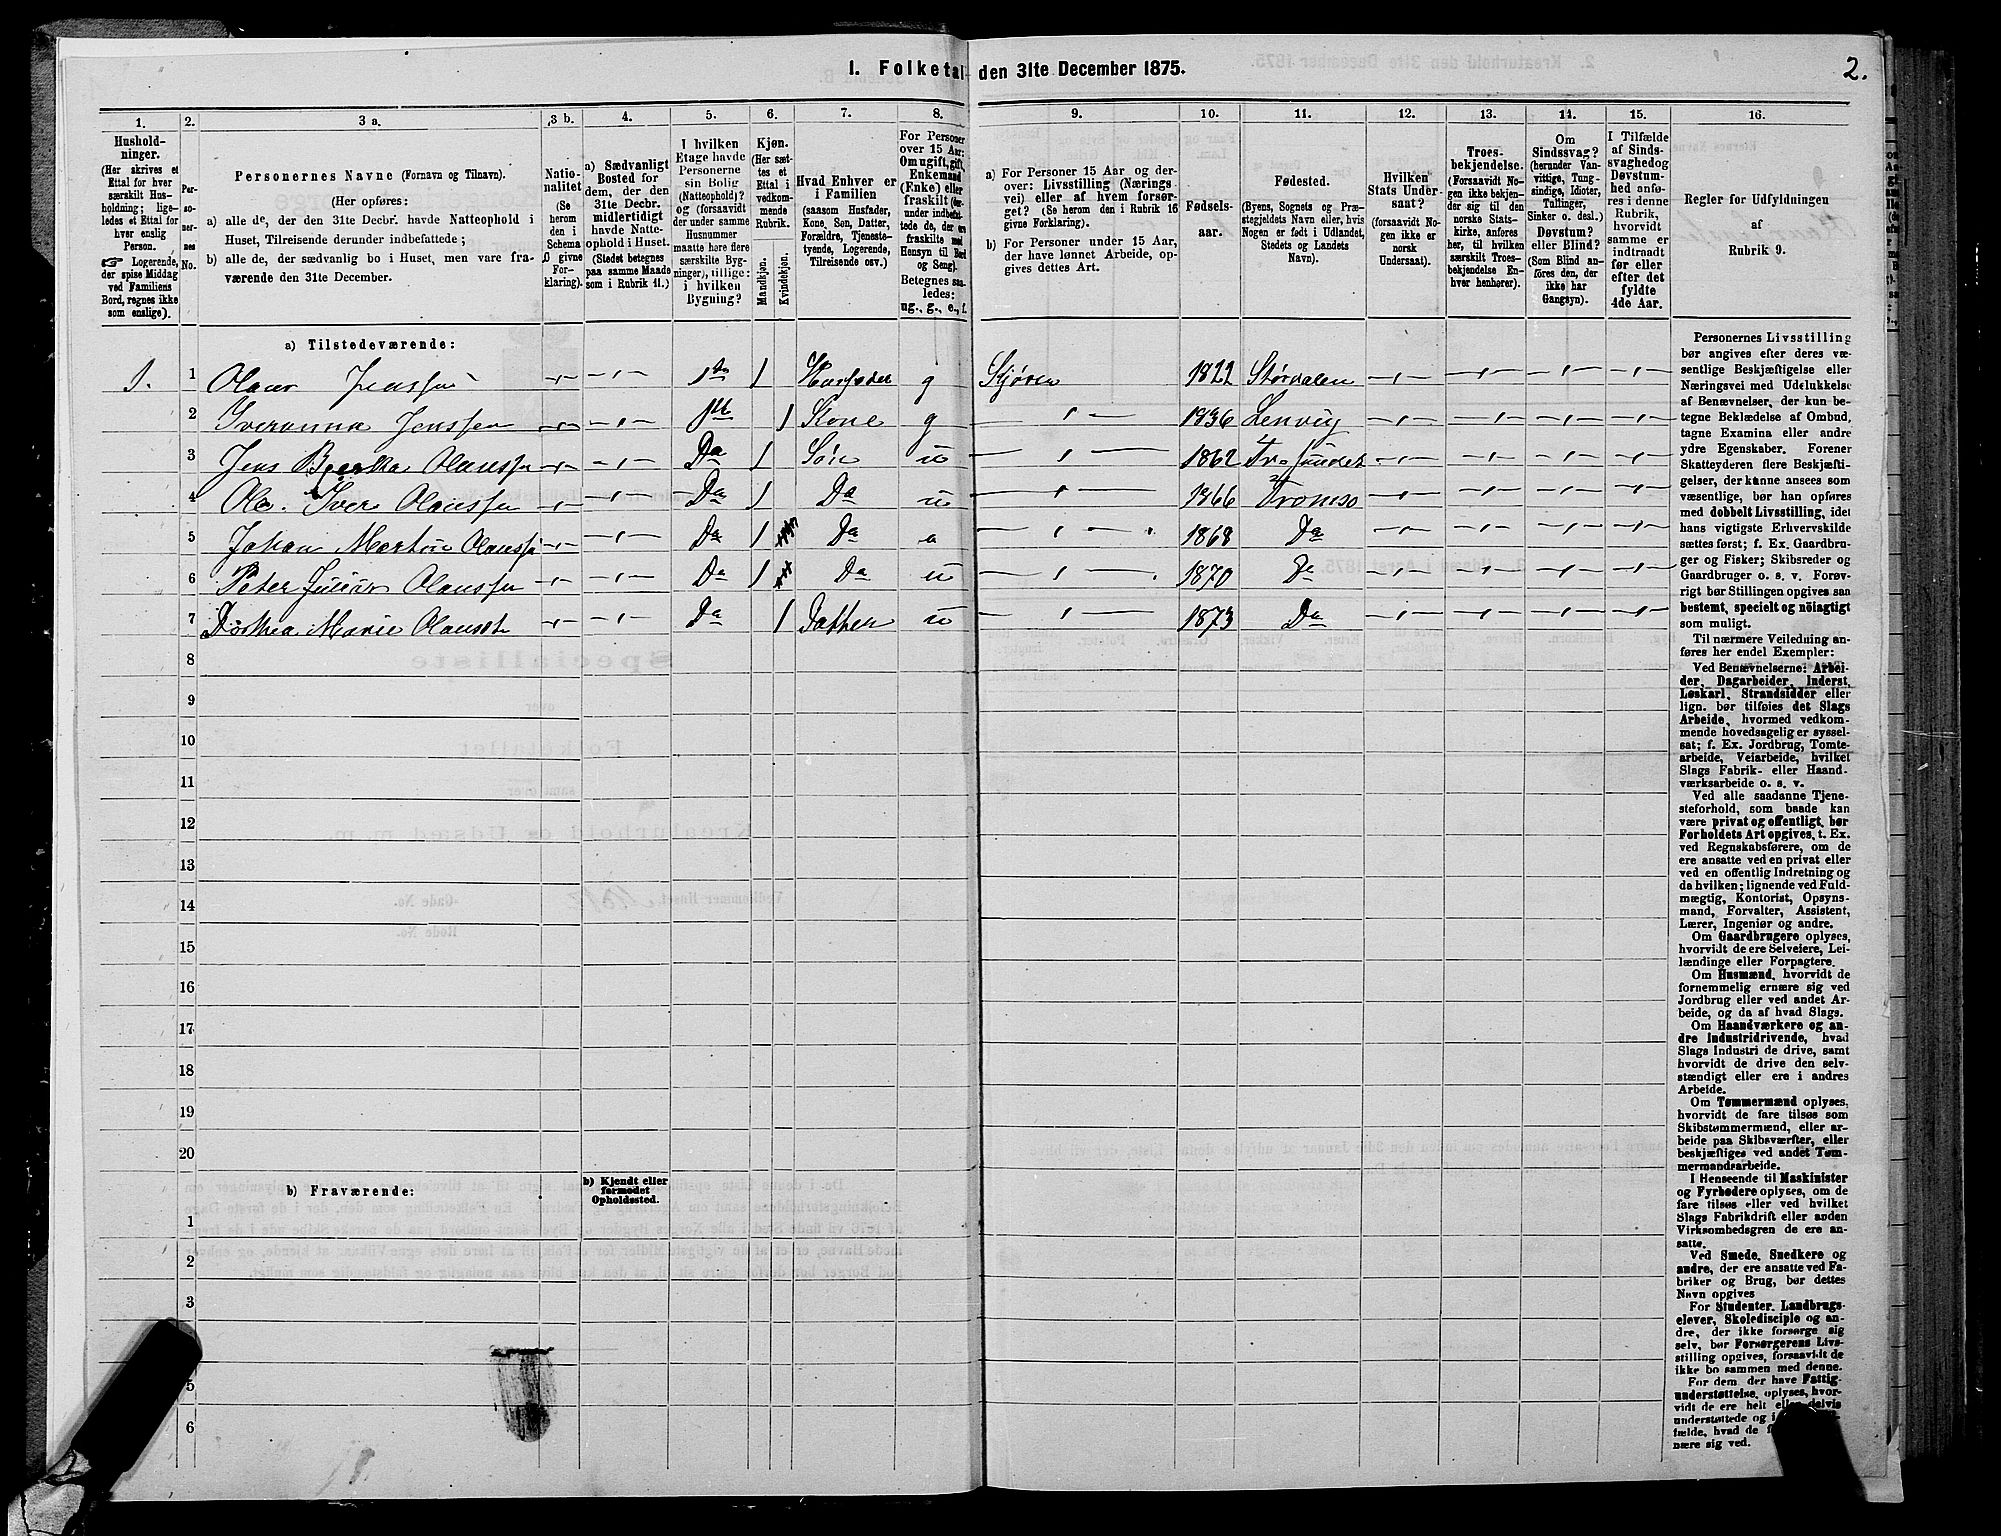 1. Folketal den 31te December 1875.
2.
1.
Husholdninger.
(Her skrives et
Ettal for hver
særskilt Husholdning;
ligeledes et Ettal for
hver enslig
Person.
Logerende,
der spise Middag
ved Familiens
Bord, regnes ikke
som enslige).
2.
Personernes
No.
3 a.
Personernes Navne (Fornavn og Tilnavn).
(Her opføres:
a) alle de, der den 31te Decbr. havde Natteophold i
Huset, Tilreisende derunder indbefattede;
b) alle de, der sædvanlig bo i Huset, men vare fraværende
den 31te December.
3 b.
Nationalitet
(Se
herom
den i
Schema
givne
Forklaring).
4.
a) Sædvanligt
Bosted for
dem, der den
31te Decbr.
midlertidigt
havde Natteophold
i Huset.
(Stedet betegnes
paa samme Maade
som i Rubrik 11.)
5.
I hvilken
Etage havde
Personerne
sin Bolig
(Natteophold)?
og (forsaavidt
der under samme
Husnummer
maatte høre flere
særskilte Bygninger),
tillige:
i hvilken
Bygning?
6.
Kjøn.
(Her sættes
et
Ettal i
vedkommende
Rubrik.
Mandkjøn.
Kvindekjøn.
7.
Hvad Enhver er
i Familien
(saasom Husfader,
Kone, Søn, Datter,
Forældre, Tjenestetyende,
Logerende,
Tilreisende osv.)
8.
For Personer
over 15 Aar:
Om ugift, gift,
Enkemand
(Enke) eller
fraskilt
Betegnes saaledes:
ug., g., e., f.
9.
a) For Personer 15 Aar og derover:
Livsstilling (Næringsvei)
eller af hvem forsørget?
(Se herom den i Rubrik 16
givne Forklaring).
b) For Personer under 15 Aar,
der have lønnet Arbeide, opgives
dettes Art.
10.
Fødselsaar.
11.
Fødested.
(Byens, Sognets og Præstegjeldets
Navn eller, hvis
Nogen er født i Udlandet,
Stedets og Landets
Navn).
12.
Hvilken
Stats Undersaat?
(forsaavidt Nogen
ikke er
norsk
Undersaat).
13.
Troesbekjendelse.
(Forsaavidt Nogen
ikke bekjender
sig til den
norske Statskirke,
anføres
her, til hvilken
særskilt Troesbekjendelse
Enhver
henhører).
14.
Om
Sindssvag?
(herunder Vanvittige,
Tungsindige,
Idioter,
Tullinger,
Sinker o. desl.)
Døvstum?
eller Blind?
(Som Blind anføres
den, der
ikke har
Gangsyn).
15.
I Tilfælde
af Sindssvaghed
og
Døvstumhed
anføres
i denne
Rubrik,
hvorvidt
samme er
indtraadt
før eller
efter det
fyldte
4de Aar.
16.
Regler for Udfyldningen
af
Rubrik 9.
a) Tilstedeværende:
1. 1 Olaus Jenssen 1ste 1 Husfader g Sjøm 1822 Størdalen
2 Iveranna Jenssen 1ste 1 Kone g 1836 Lenvig
3 Jens Olaussen Da 1 Søn u 1862
4 Ole Iver Olaussen Da 1 Da u 1866 Tromsø
5 Johan Martin Olaussen Da 1 Da u 1868 Da
6 Peter Junior Olaussen Da 1 Da u 1870 Da
7 Dorthea Marie Olausdt Da 1 Datter u 1873 Da
8
9
10
11
12
13
14
15
16
17
18
19
20
b) Fraværende:
b) Kjendt eller
formodet
Opholdssted.
1
2
3
5
6
Personernes Livsstilling
bør angives efter deres væsentlige
Beskjæftigelse eller
Næringsvei med Udelukkelse
af Benævnelser, der kun betegne
Beklædelse af Ombud,
tagne Examina eller andre
ydre Egenskaber. Forener
Skatteyderen flere Beskjæftigelser,
der kunne ansees som
væsentlige, bør han opføres
med dobbelt Livsstilling, idet
hans vigtigste Erhvervskilde
sættes først; f. Ex. Gaardbruger
og Fisker; Skibsreder og
Gaardbruger o. s. v. Forøvrigt
bør Stillingen opgives saa
bestemt, specielt og nöiagtigt
som muligt.
Til nærmere Veiledning anføres
her endel Exempler:
Ved Benævnelserne: Arbeider,
Dagarbeider, Inderst,
Løskarl, Strandsidder eller
lign. bør tilføies det Slags
Arbeide, hvormed vedkommende
hovedsagelig er sysselsat;
f. Ex. Jordbrug, Tomtearbeide,
Veiarbeide, hvilket
Slags Fabrik- eller Haandværksarbeide
o. s. v.
Ved alle saadanne Tjenesteforhold,
som baade kan
være privat og offentligt, bør
Forholdets Art opgives, t. Ex.
ved Regnskabsførere, om de
ere ansatte ved en privat eller
ved en offentlig Indretning og
da hvilken; lignende ved Fuldmægtig,
Kontorist, Opsynsmand,
Forvalter, Assistent,
Lærer, Ingeniør og andre.
Om Gaardbrugere oplyses,
hvorvidt de ere Selveiere, Leilændinge
eller Forpagtere.
Om Husmænd, hvorvidt de
fornemmelig ernære sig ved
Jordbrug eller ved andet Arbeide,
og da af hvad Slags.
Om Haandværkere og andre
Industridrivende, hvad
Slags Industri de drive, samt
hvorvidt de drive den selvstændigt
eller ere i andres
Arbeide.
Om Tømmermænd oplyses,
hvorvidt de fare tilsøs som
Skibstømmermænd, eller arbeide
paa Skibsværfter, eller
beskjæftiges ved andet Tømmermandsarbeide.
I Henseende til Maskinister
og Fyrbødere oplyses, om de
fare tilsøs eller ved hvilket
Slags Fabrikdrift eller anden
Virksomhedsgren de ere ansatte.
Ved Smede, Snedkere og
andre, der ere ansatte ved Fabriker
og Brug, bør dettes
Navn opgives
For Studenter, Landbrugselever,
Skoledisciple og andre,
der ikke forsørge sig
selv, bør Forsørgerens Livsstilling
opgives, forsaavidt de
ikke bo sammen med denne.
For dem, der have Fattigunderstøttelse,
oplyses, hvorvidt
de ere helt eller delvis
understøttede og i
fælde, hvad de
nære sig ved.